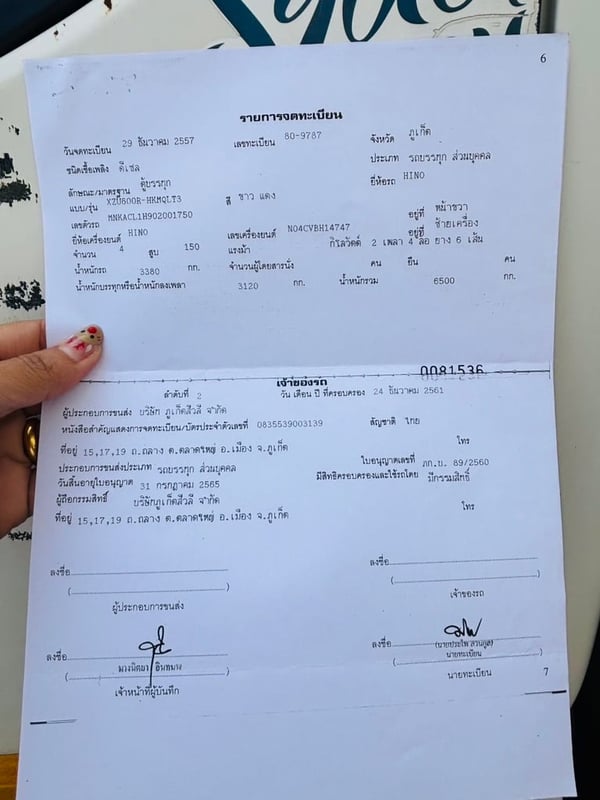 6
รายการจดทะเบียน
วันจดทะเบียน 29 ธันวาคม 2557 เลขทะเบียน 80-9787 จังหวัด ภูเก็ต
ชนิดเชื้อเพลิง ดีเซล ประเภท รถบรรทุก ส่วนบุคคล
ลักษณะ/มาตรฐาน ตู้บรรทุก ยี่ห้อรถ HINO
แบบ/รุ่น XZU600R-HKMQLT3 สี ขาว แดง
เลขตัวรถ MNKACL1H902001750 อยู่ที่ หน้าขวา
ยี่ห้อเครื่องยนต์ HINO เลขเครื่องยนต์ N04CVBH14747 อยู่ที่ ซ้ายเครื่อง
จำนวน 4 สูบ 150 แรงม้า กิโลวัตต์ 2 เพลา 4 ล้อ ยาง 6 เส้น
น้ำหนักรถ 3380 กก. จำนวนผู้โดยสารนั่ง คน ยืน คน
น้ำหนักบรรทุกหรือน้ำหนักลงเพลา 3120 กก. น้ำหนักรวม 6500 กก.
0081536
เจ้าของรถ
ลำดับที่ 2 วัน เดือน ปี ที่ครอบครอง 24 ธันวาคม 2561
ผู้ประกอบการขนส่ง บริษัท ภูเก็ตสีวลี จำกัด
หนังสือสำคัญแสดงการจดทะเบียน/บัตรประจำตัวเลขที่ 0835539003139 สัญชาติ ไทย
ที่อยู่ 15,17,19 ถ.ถลาง ต.ตลาดใหญ่ อ.เมือง จ.ภูเก็ต โทร
ประกอบการขนส่งประเภท รถบรรทุก ส่วนบุคคล ใบอนุญาตเลขที่ ภก.ย. 89/2560
วันสิ้นอายุใบอนุญาต 31 กรกฎาคม 2565 มีสิทธิครอบครองและใช้รถโดย มีกรรมสิทธิ์
ผู้ถือกรรมสิทธิ์ บริษัทภูเก็ตสีวลี จำกัด
ที่อยู่ 15,17,19 ถ.ถลาง ต.ตลาดใหญ่ อ.เมือง จ.ภูเก็ต โทร
ลงชื่อ ลงชื่อ
( ) ( )
ผู้ประกอบการขนส่ง เจ้าของรถ
ลงชื่อ ลงชื่อ
นายทะเบียน
เจ้าหน้าที่ผู้บันทึก นายทะเบียน
7